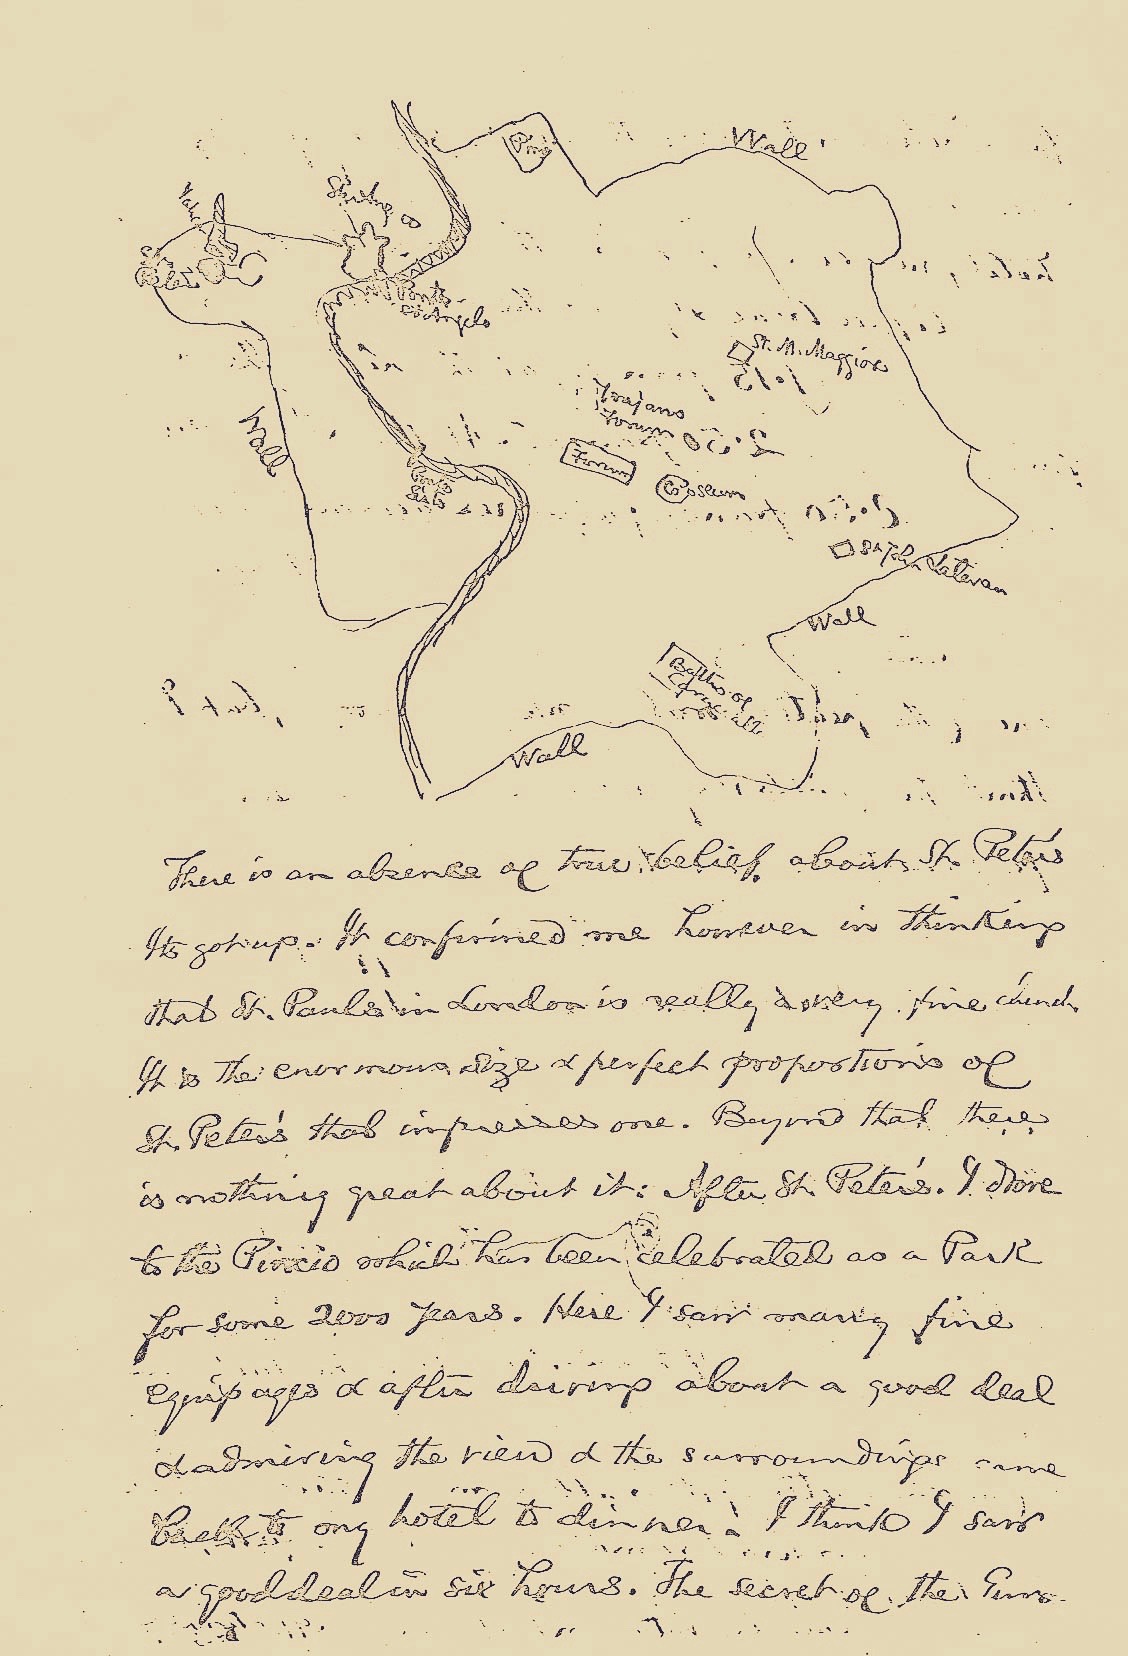 Pinc
Wall
St.
Peters
Ponte
St. Angelo
St. M. Maggiore
Trajans
Forum
Forum
Coloseum
Wall
Ponte
St. John Lateran
Wall
Baths of
Wall
There is an absence of true belief about St. Peter's
Its got up. It confirmed me however in thinking
that St. Pauls in London is really a very fine church
It is the enormous size & perfect proportions of
St. Peter's that impresses one. Beyond that there
is nothing great about it: After St. Peter's. I drove
to the Pincio which has been celebrated as a Park
for some 2000 years. Here I saw many fine
equipages & after driving about a good deal
& admiring the view & the surroundings came
back to my hotel to dinner. I think I saw
a good deal in six hours. The secret of the Euro-